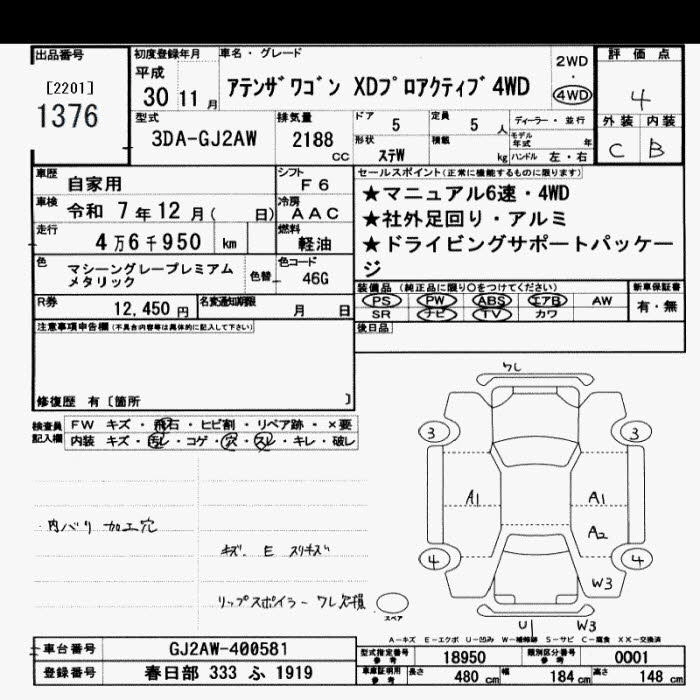 出品番号
[2201]
1376
初度登録年月
平成
30 11 月
車名・グレード
アテンザワゴン XDプロアクティブ4WD
2WD
・
4WD
評価点
4
外装 内装
C B
型式
3DA-GJ2AW
排気量
2188
CC
ドア
5
定員
5 人
形状
ステW
積載
kg
ディーラー・並行
モデル年式 年
ハンドル 左・右
車歴
自家用
シフト
F6
車検
令和 7年12月( 日)
冷房
AAC
走行
4万6千950 km
燃料
軽油
色
マシーングレープレミアム
メタリック
色替
色コード
46G
R券
12,450 円
名変通知期限
月 日
セールスポイント(正常に機能するものに限ります)
★マニュアル6速・4WD
★社外足回り・アルミ
★ドライビングサポートパッケー
ジ
装備品(純正品に限り○をつけてください)
PS PW ABS エアB AW
SR ナビ TV カワ
新車保証書
有・無
後日品
注意事項申告欄(不具合内容等は具体的に記入して下さい)
修復歴 有〔箇所 〕
検査員
記入欄
FW キズ・飛石・ヒビ割・リペア跡・×要
内装 キズ・汚レ・コゲ・穴・スレ・キレ・破レ
・内バリ 加工穴
キズ、E スリキズ
リップスポイラーワレ欠損
ワレ
3 3
A1 A1
A2
4 4
W3
U1 W3
スペア
A-キズ E-エクボ U-凹み W-補修跡 S-サビ C-腐食 XX-交換済
車台番号
GJ2AW-400581
登録番号
春日部 333 ふ 1919
型式指定番号
参考
18950
類別区分番号
参考
0001
車庫証明用
参考
長さ
480 cm
幅
184 cm
高さ
148 cm